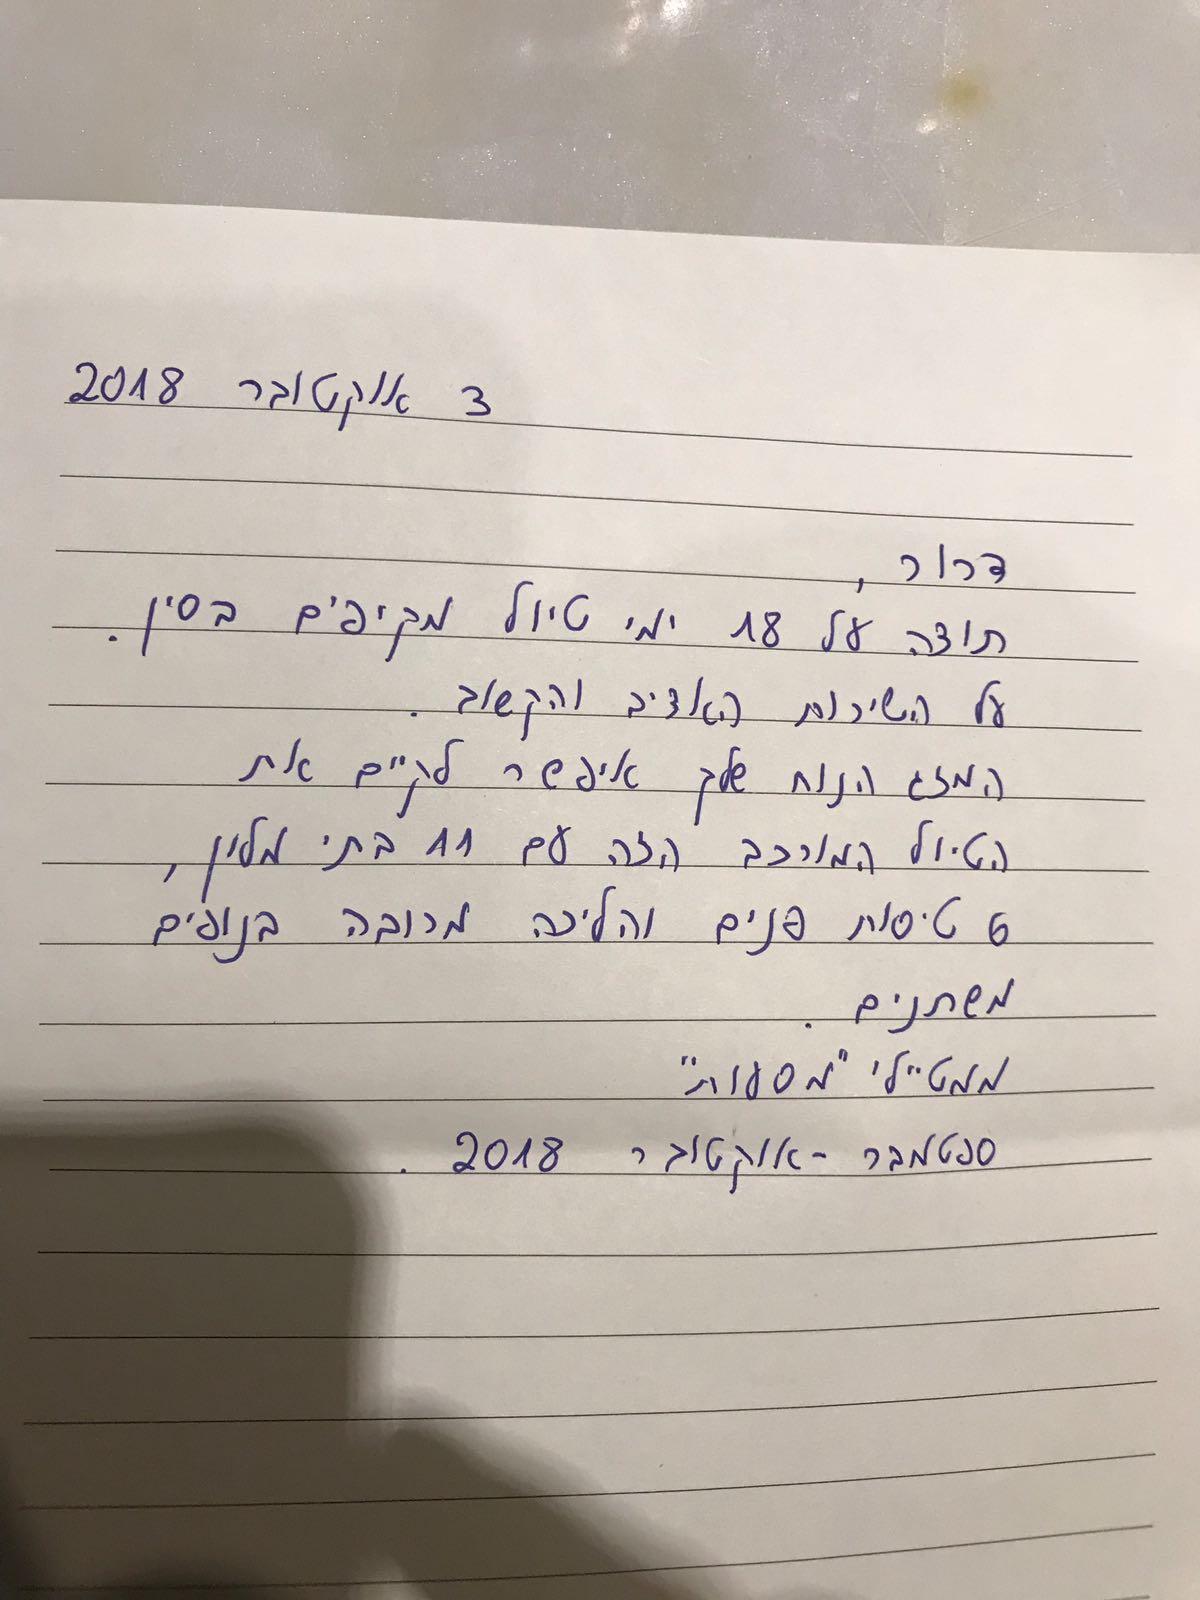 3 אוקטובר 2018
דרור,
תודה על 18 ימי טיול מקיפים בסין.
על השירות האדיב והקשוב.
המזג הנוח שלך איפשר לקיים את
הטיול המורכב הזה עם 11 בתי מלון,
6 טיסות פנים והליכה מרובה בנופים
משתנים.
ממטיילי "מסעות"
ספטמבר - אוקטובר 2018.